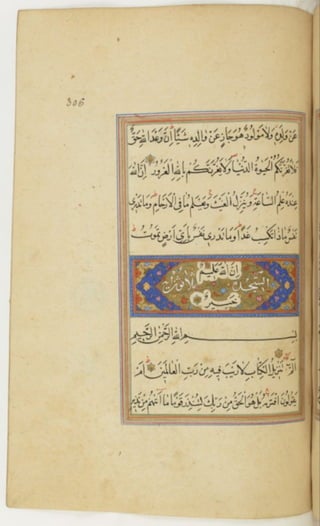 306
عَنْ وَلَدِهِ وَلَا مَوْلُودٌ هُوَ جَازٍ عَنْ وَالِدِهِ شَيْئًا إِنَّ وَعْدَ اللَّهِ حَقٌّ
فَلَا تَغُرَّنَّكُمُ الْحَيَوةُ الدُّنْيَا وَلَا يَغُرَّنَّكُمْ بِاللَّهِ الْغَرُورُ إِنَّ اللَّهَ
عِنْدَهُ عِلْمُ السَّاعَةِ وَيُنَزِّلُ الْغَيْثَ وَيَعْلَمُ مَا فِي الْأَرْحَامِ وَمَا تَدْرِي
نَفْسٌ مَاذَا تَكْسِبُ غَدًا وَمَا تَدْرِي نَفْسٌ بِأَيِّ أَرْضٍ تَمُوتُ
إِنَّ اللَّهَ عَلِيمٌ
خَبِيرٌ
بِسْمِ اللَّهِ الرَّحْمَنِ الرَّحِيمِ
الم تَنْزِيلُ الْكِتَابِ لَا رَيْبَ فِيهِ مِنْ رَبِّ الْعَالَمِينَ أَمْ
يَقُولُونَ افْتَرَيهُ بَلْ هُوَ الْحَقُّ مِنْ رَبِّكَ لِتُنْذِرَ قَوْمًا مَا أَتَيهُمْ مِنْ نَذِيرٍ